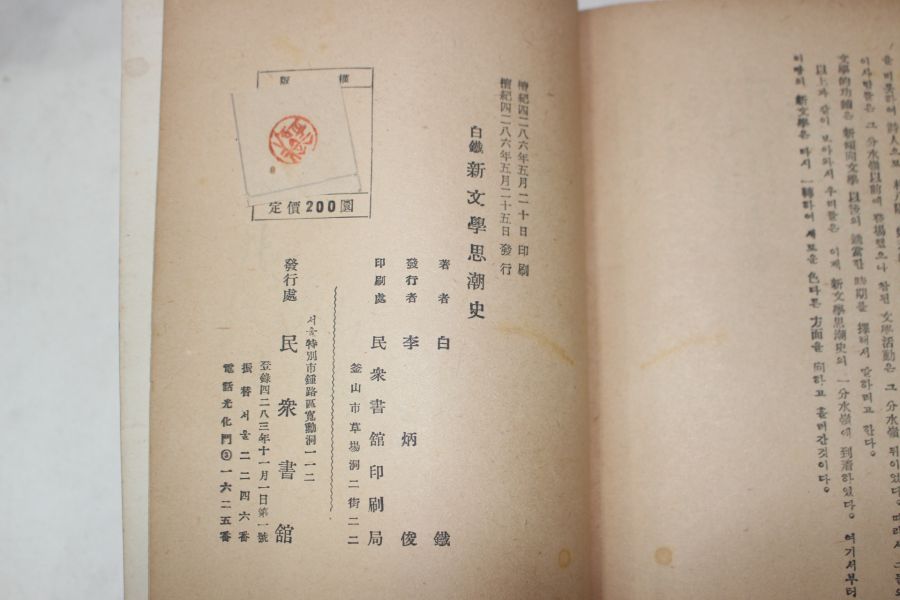 을 비롯하여 詩人으로
이사람들은 그 分水嶺以前에 登場했으나 참된 文學活動은 그 分水嶺 뒤이었다。따라서 그들의
文學的功績은 新傾向文學 以後의 該當한 時期를 擇해서 말하려고 한다。
以上과 같이 보아와서 우리들은 이제 新文學思潮史의 一分水嶺에 到着하였다。여기서부터
이땅의 新文學은 다시 一轉하여 새로운 色다른 方面을 向하고 흘러간것이다。
檀紀四二八六年五月二十日 印刷
檀紀四二八六年五月二十五日 發行
白鐵 新文學思潮史
著者 白鐵
發行者 李炳俊
印刷處 民衆書舘印刷局
釜山市草場洞二街二二
서울特別市鍾路區寬勳洞一一二
發行處 民衆書舘
登錄四二八三年十一月一日第一號
振替서울二二四六番
電話光化門③一六二五番
版權
定價200圜